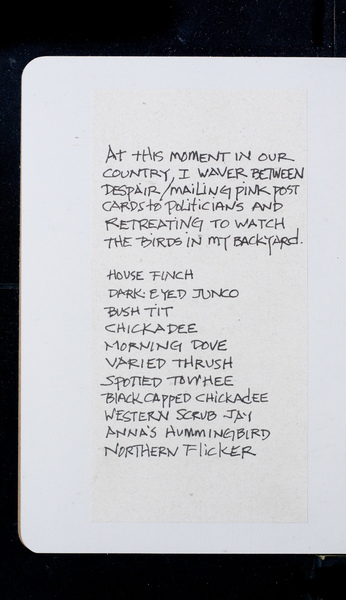 At this moment in our
country, I waver between
despair/mailing pink post
cards to politicians and
retreating to watch
the birds in my backyard.
House Finch
Dark-Eyed Junco
Bush Tit
Chickadee
Morning Dove
Varied Thrush
Spotted Towhee
Black Capped Chickadee
Western Scrub-Jay
Anna's Hummingbird
Northern Flicker